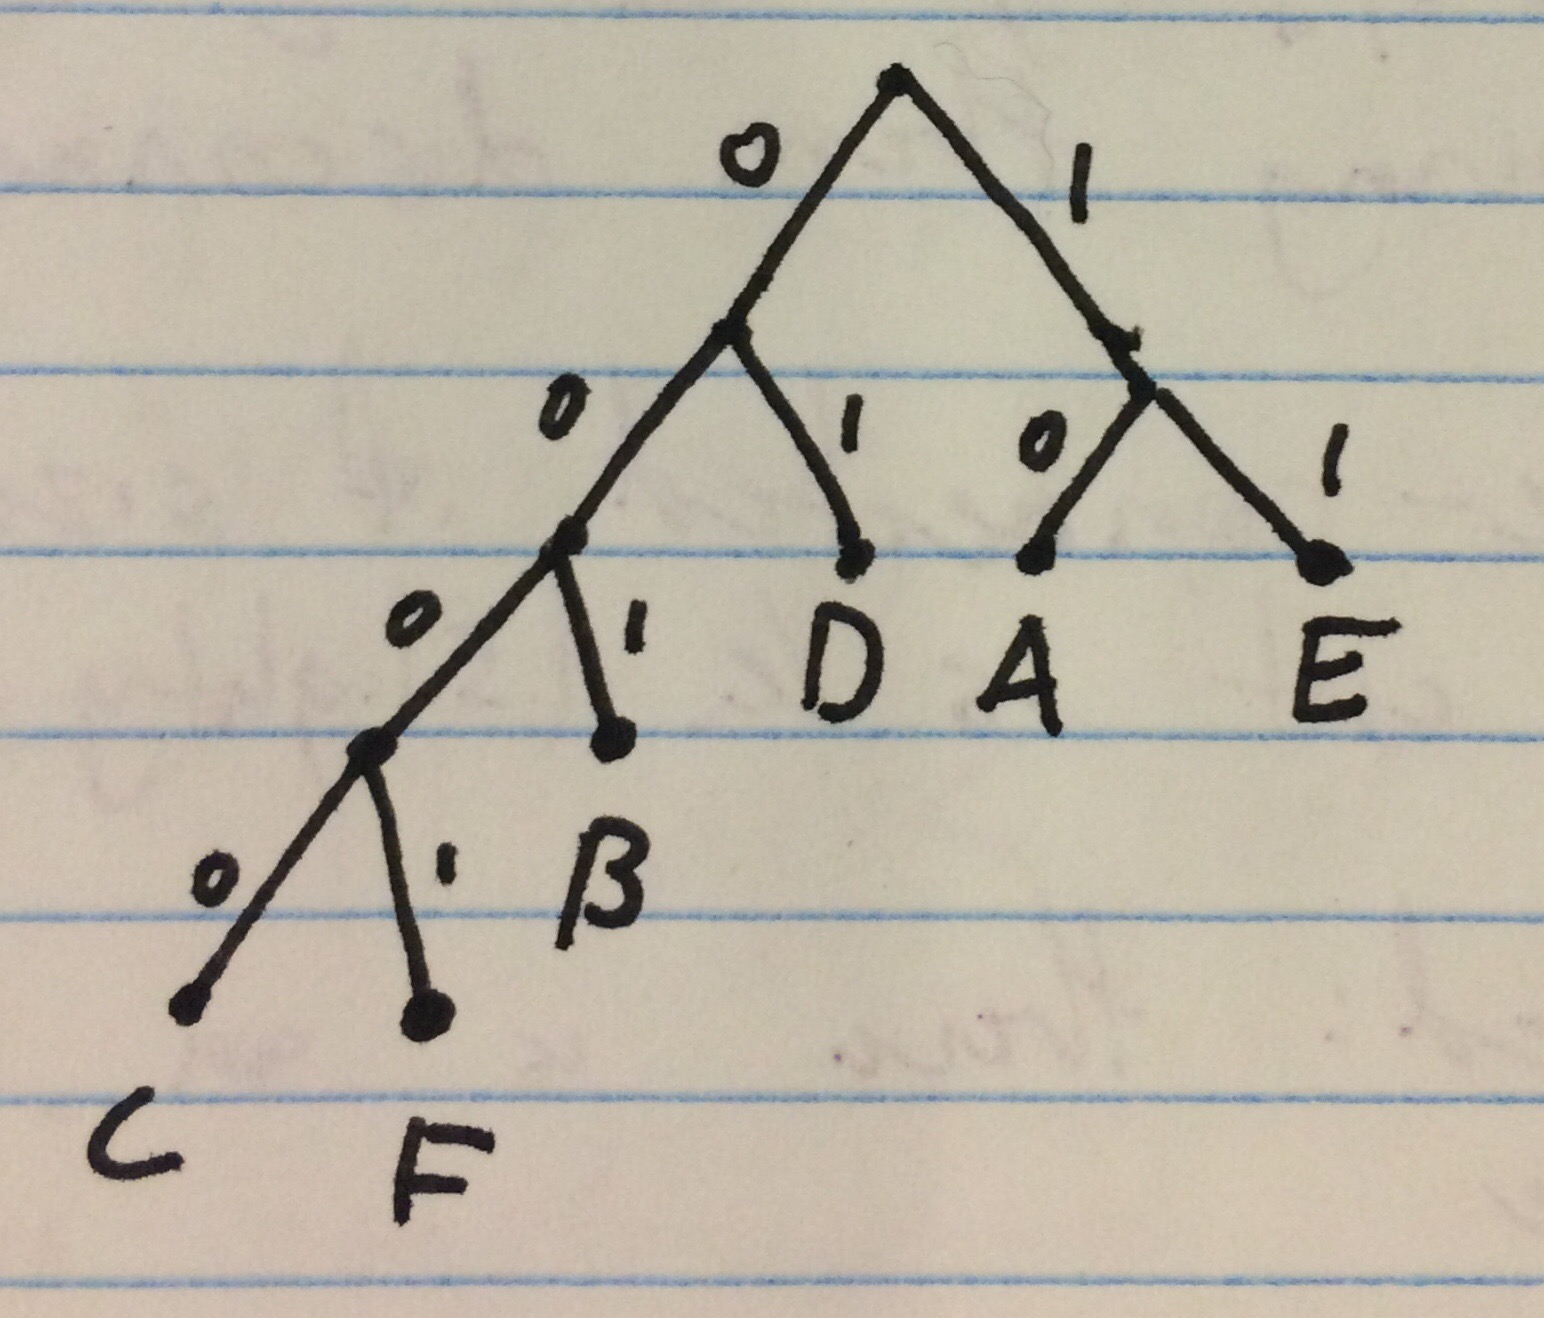 0 1
0 1 0 1
0 1 D A E
0 1 B
C F